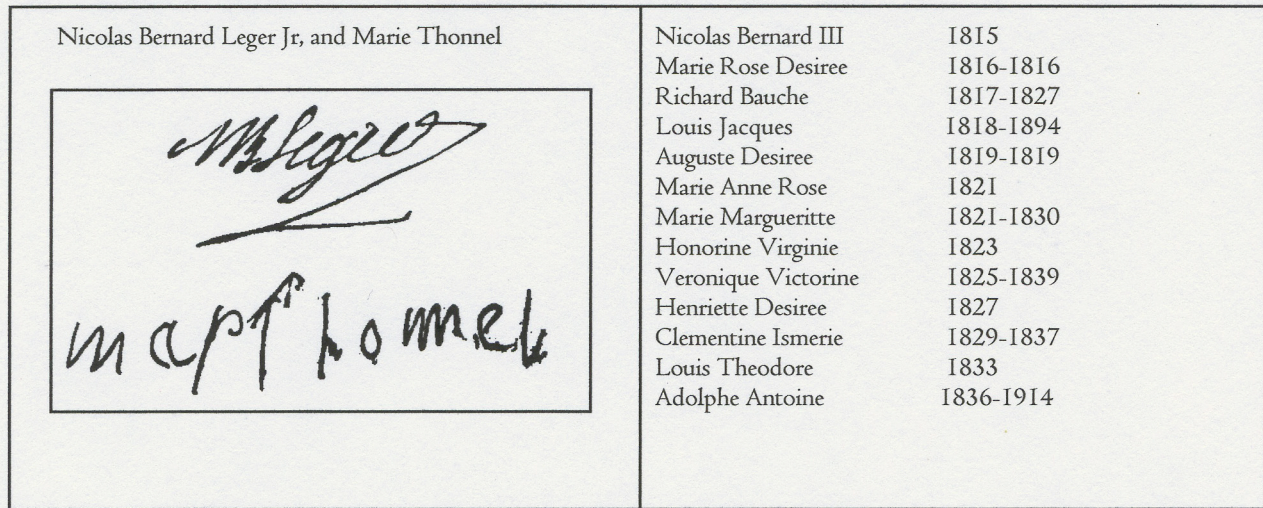 Nicolas Bernard Leger Jr, and Marie Thonnel
NBLeger
map Thonnel
Nicolas Bernard III 1815
Marie Rose Desiree 1816-1816
Richard Bauche 1817-1827
Louis Jacques 1818-1894
Auguste Desiree 1819-1819
Marie Anne Rose 1821
Marie Margueritte 1821-1830
Honorine Virginie 1823
Veronique Victorine 1825-1839
Henriette Desiree 1827
Clementine Ismerie 1829-1837
Louis Theodore 1833
Adolphe Antoine 1836-1914